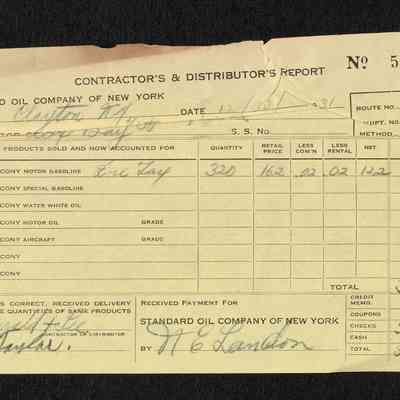 CONTRACTOR'S & DISTRIBUTOR'S REPORT
Nº 5
D OIL COMPANY OF NEW YORK
Clayton NY
DATE 31
ROUTE NO.
DEPT. NO.
METHOD
S. S. No.
PRODUCTS SOLD AND NOW ACCOUNTED FOR QUANTITY RETAIL PRICE LESS COM'N LESS RENTAL NET
CONY MOTOR GASOLINE 320 162 .02 .02 122
CONY SPECIAL GASOLINE
CONY WATER WHITE OIL
CONY MOTOR OIL GRADE
CONY AIRCRAFT GRADE
CONY
CONY
TOTAL
IS CORRECT, RECEIVED DELIVERY
E QUANTITIES OF SAME PRODUCTS
CONTRACTOR OR DISTRIBUTOR
Taylor.
RECEIVED PAYMENT FOR
STANDARD OIL COMPANY OF NEW YORK
BY N E Landon
CREDIT MEMO.
COUPONS
CHECKS
CASH
TOTAL